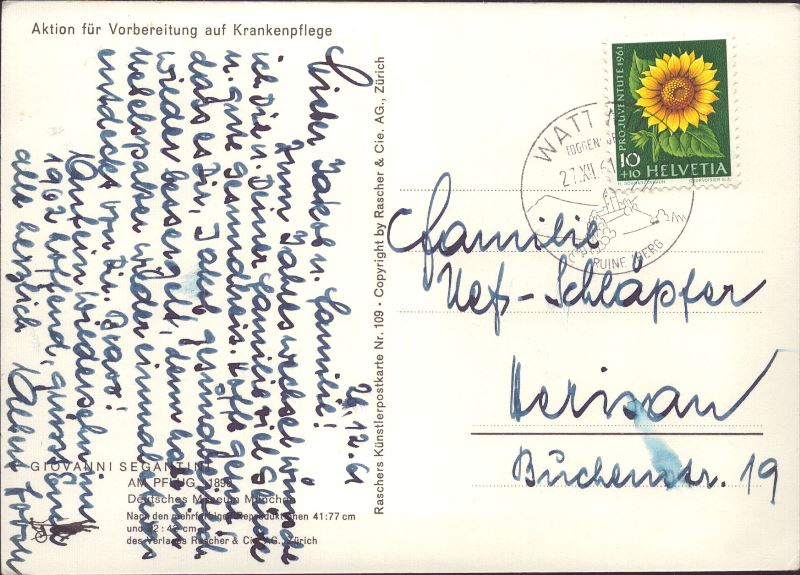 Aktion für Vorbereitung auf Krankenpflege
26.12.61
Lieber Jakob u. Familie!
Zum Jahreswechsel wünsche
ich Dir u. Deiner Familie viel Glück
u. gute Gesundheit. Hoffe gerne,
dass es Dir, Jakob gesundheitlich
wieder besser geht, denn hab im
Nebelspalter wieder einmal etwas
entdeckt von Dir. Bravo!
Auf ein Wiedersehn im
1962 hoffend, grüsst Euch
alle herzlich Albert
GIOVANNI SEGANTINI
AM PFLUG, 1890
Deutsches Museum München
Nach den mehrfarbigen Reproduktionen 41:77 cm
und 22:42 cm
des Verlages Rascher & Cie. AG., Zürich
Raschers Künstlerpostkarte Nr. 109 · Copyright by Rascher & Cie. AG., Zürich
PRO JUVENTUTE 1961
10
+10
HELVETIA
WATT
27.XII.61
RUINE IBERG
Familie
Nef-Schläpfer
Herisau
Buchenstr. 19